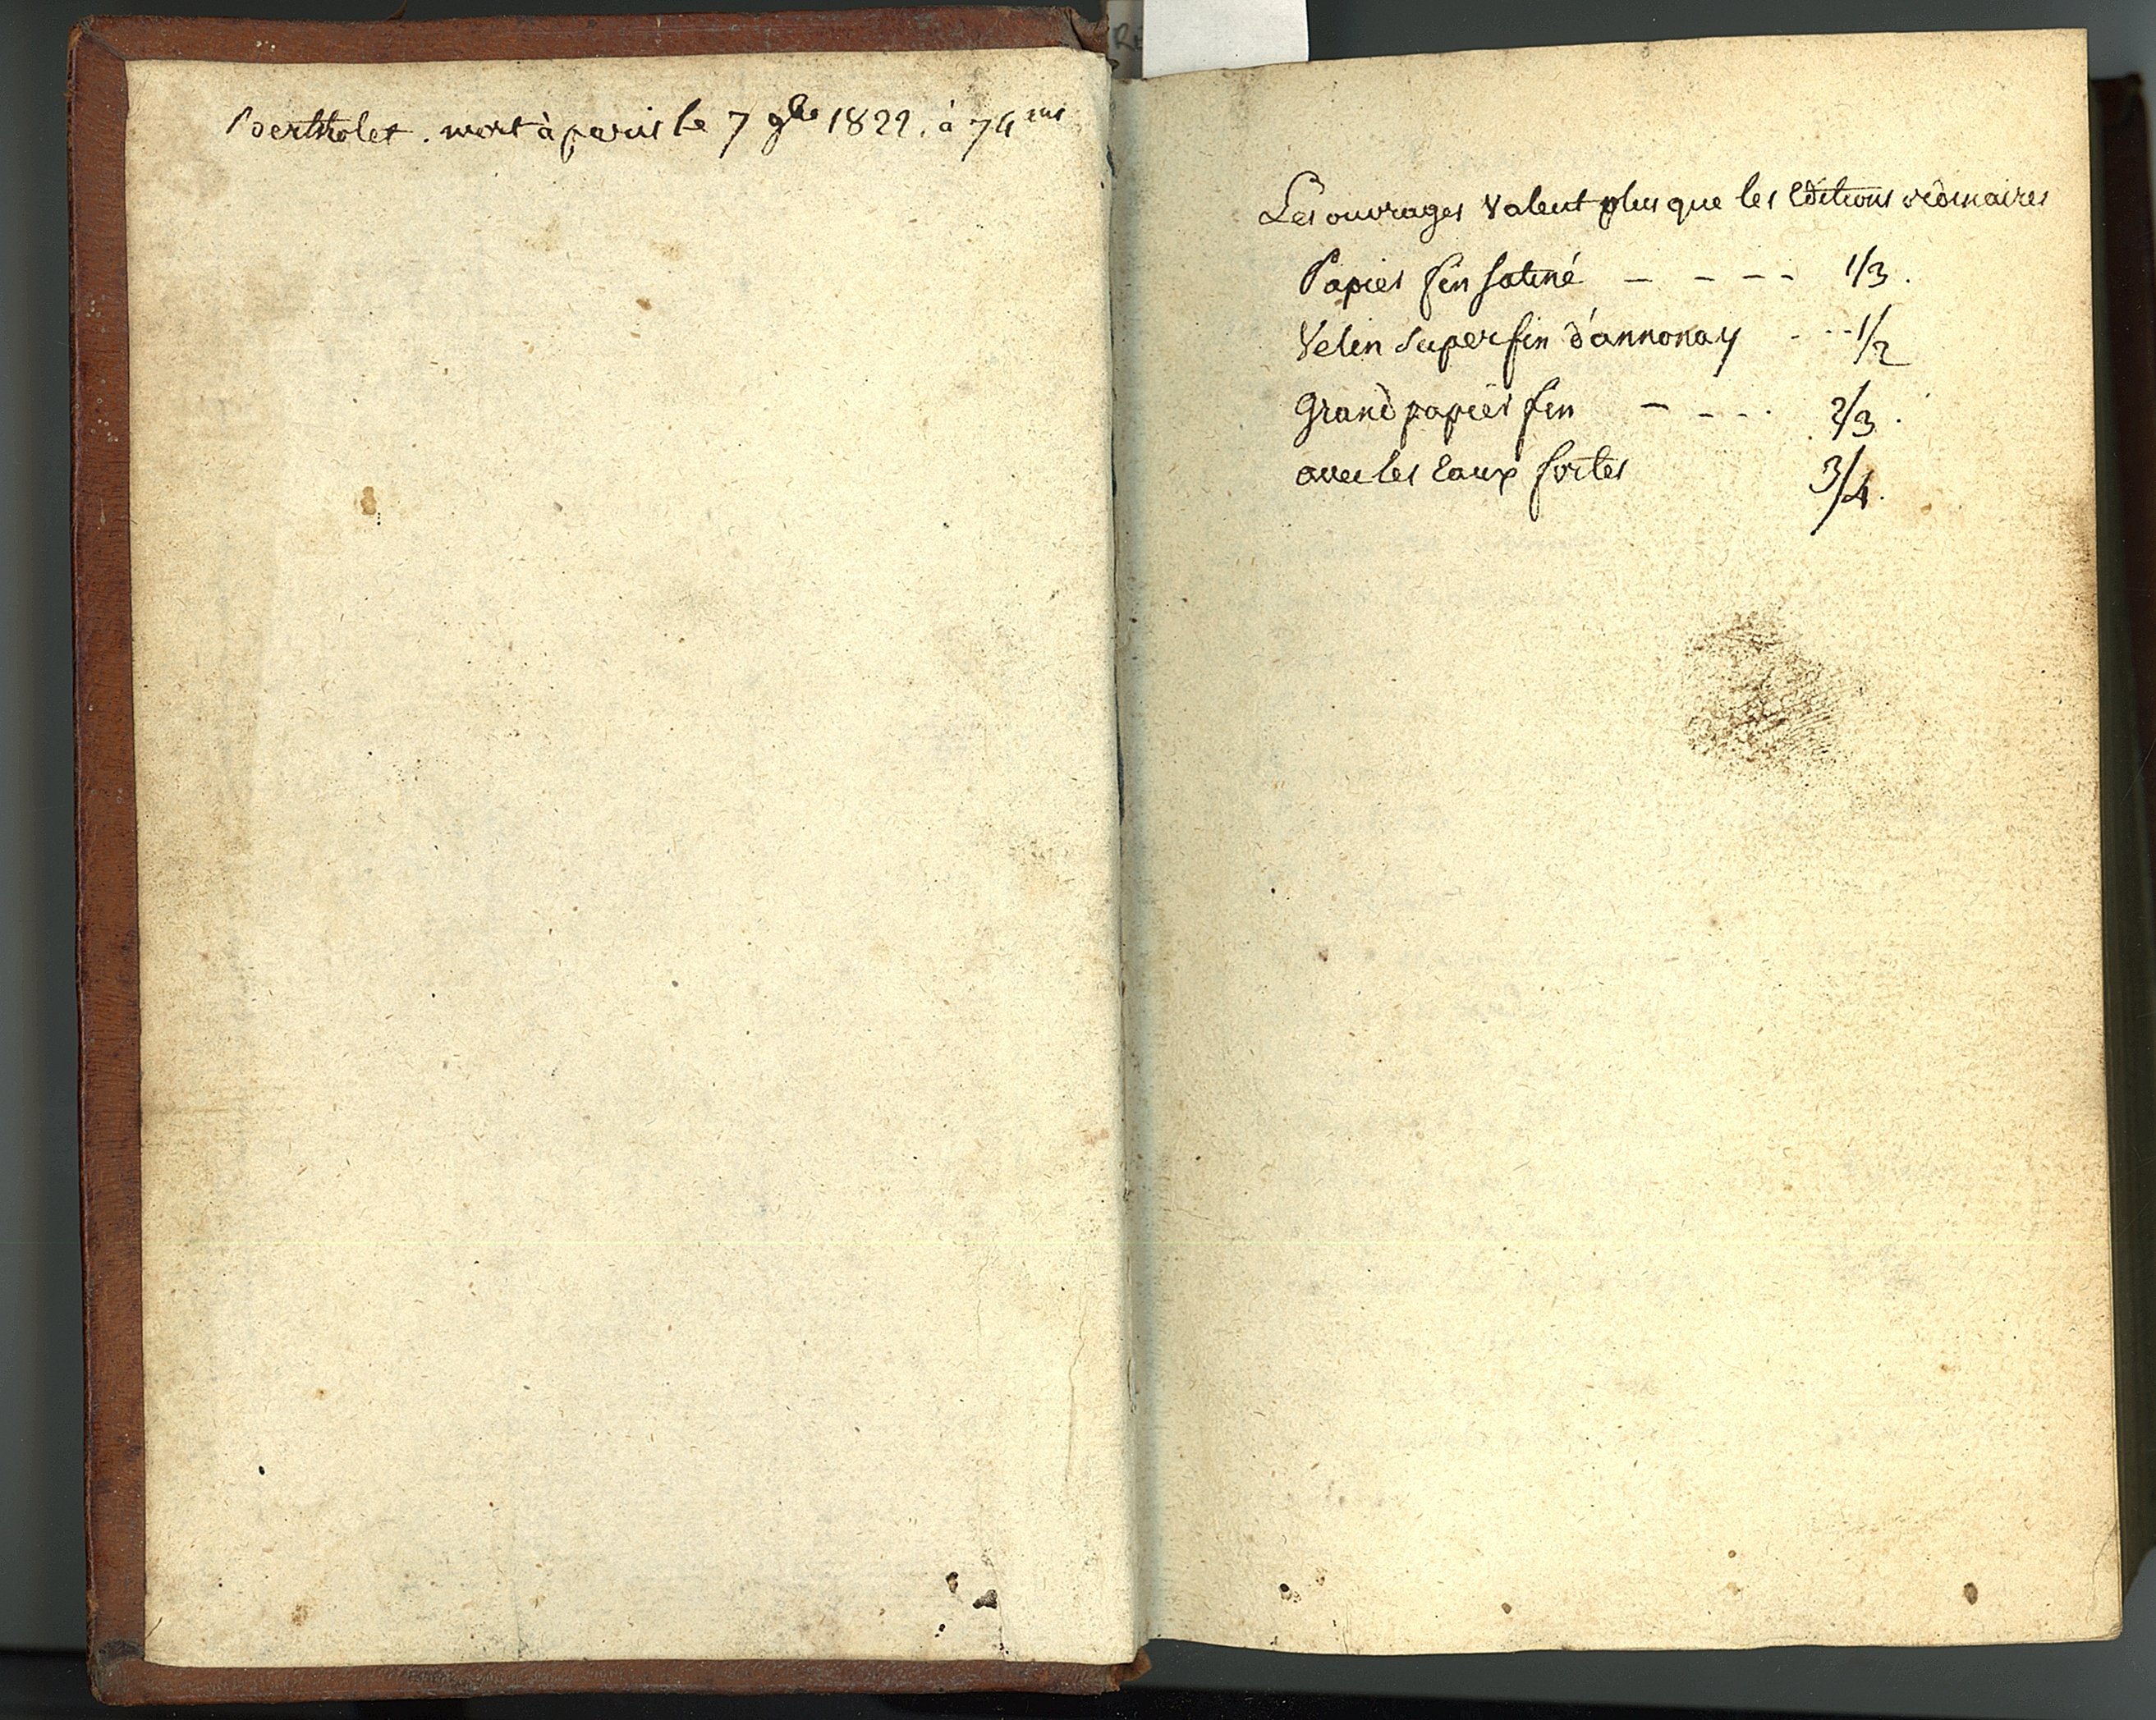 Bertholet . mort à paris le 7 9bre 1822. à 74 ans
Les ouvrages valent plus que les Editions ordinaires
Papier fin satiné - - - - 1/3.
Velin Superfin d'annonay - - - 1/2
Grand papier fin - - - . 2/3.
avec les Eaux fortes 3/4.